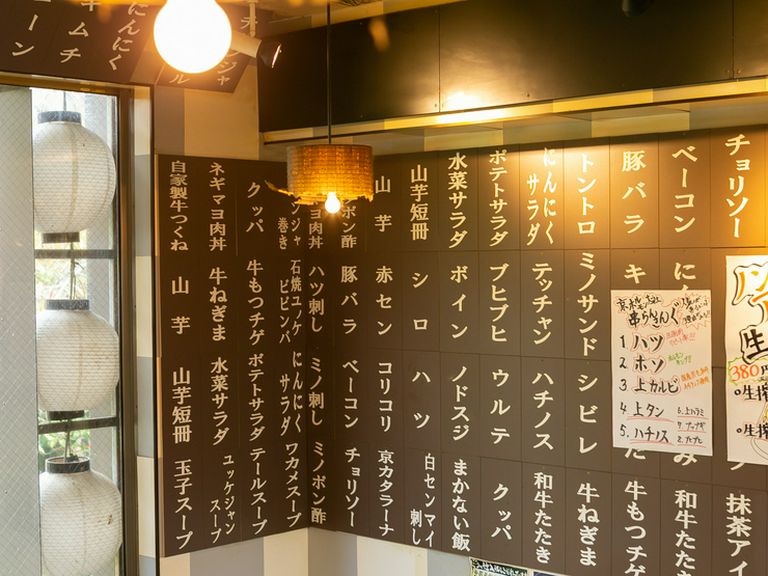 チョリソー
抹茶アイ
ベーコン
に
み
和牛たた
豚バラ
キ
た
牛もつチゲ
トントロ
ミノサンド
シビレ
牛ねぎま
にんにく
サラダ
テッチャン
ハチノス
和牛たたき
ポテトサラダ
ブヒブヒ
ウルテ
クッパ
水菜サラダ
ボイン
ノドスジ
まかない飯
山芋短冊
シロ
ハツ
白センマイ
刺し
山芋
赤セン
コリコリ
京カタラーナ
ポン酢
豚バラ
ベーコン
チョリソー
ヨ肉丼
ハツ刺し
ミノ刺し
ミノポン酢
ンジャ
巻き
石焼ユッケ
ビビンバ
にんにく
サラダ
ワカメスープ
クッパ
牛もつチゲ
ポテトサラダ
テールスープ
ネギマヨ肉丼
牛ねぎま
水菜サラダ
ユッケジャン
スープ
自家製牛つくね
山芋
山芋短冊
玉子スープ
にんにく
キムチ
ーン
串らんきんぐ
1 ハツ
2 ホソ
3 上カルビ
4 上タン
5. ハチノス
6. 上ハラミ
生
380円
生搾
生搾